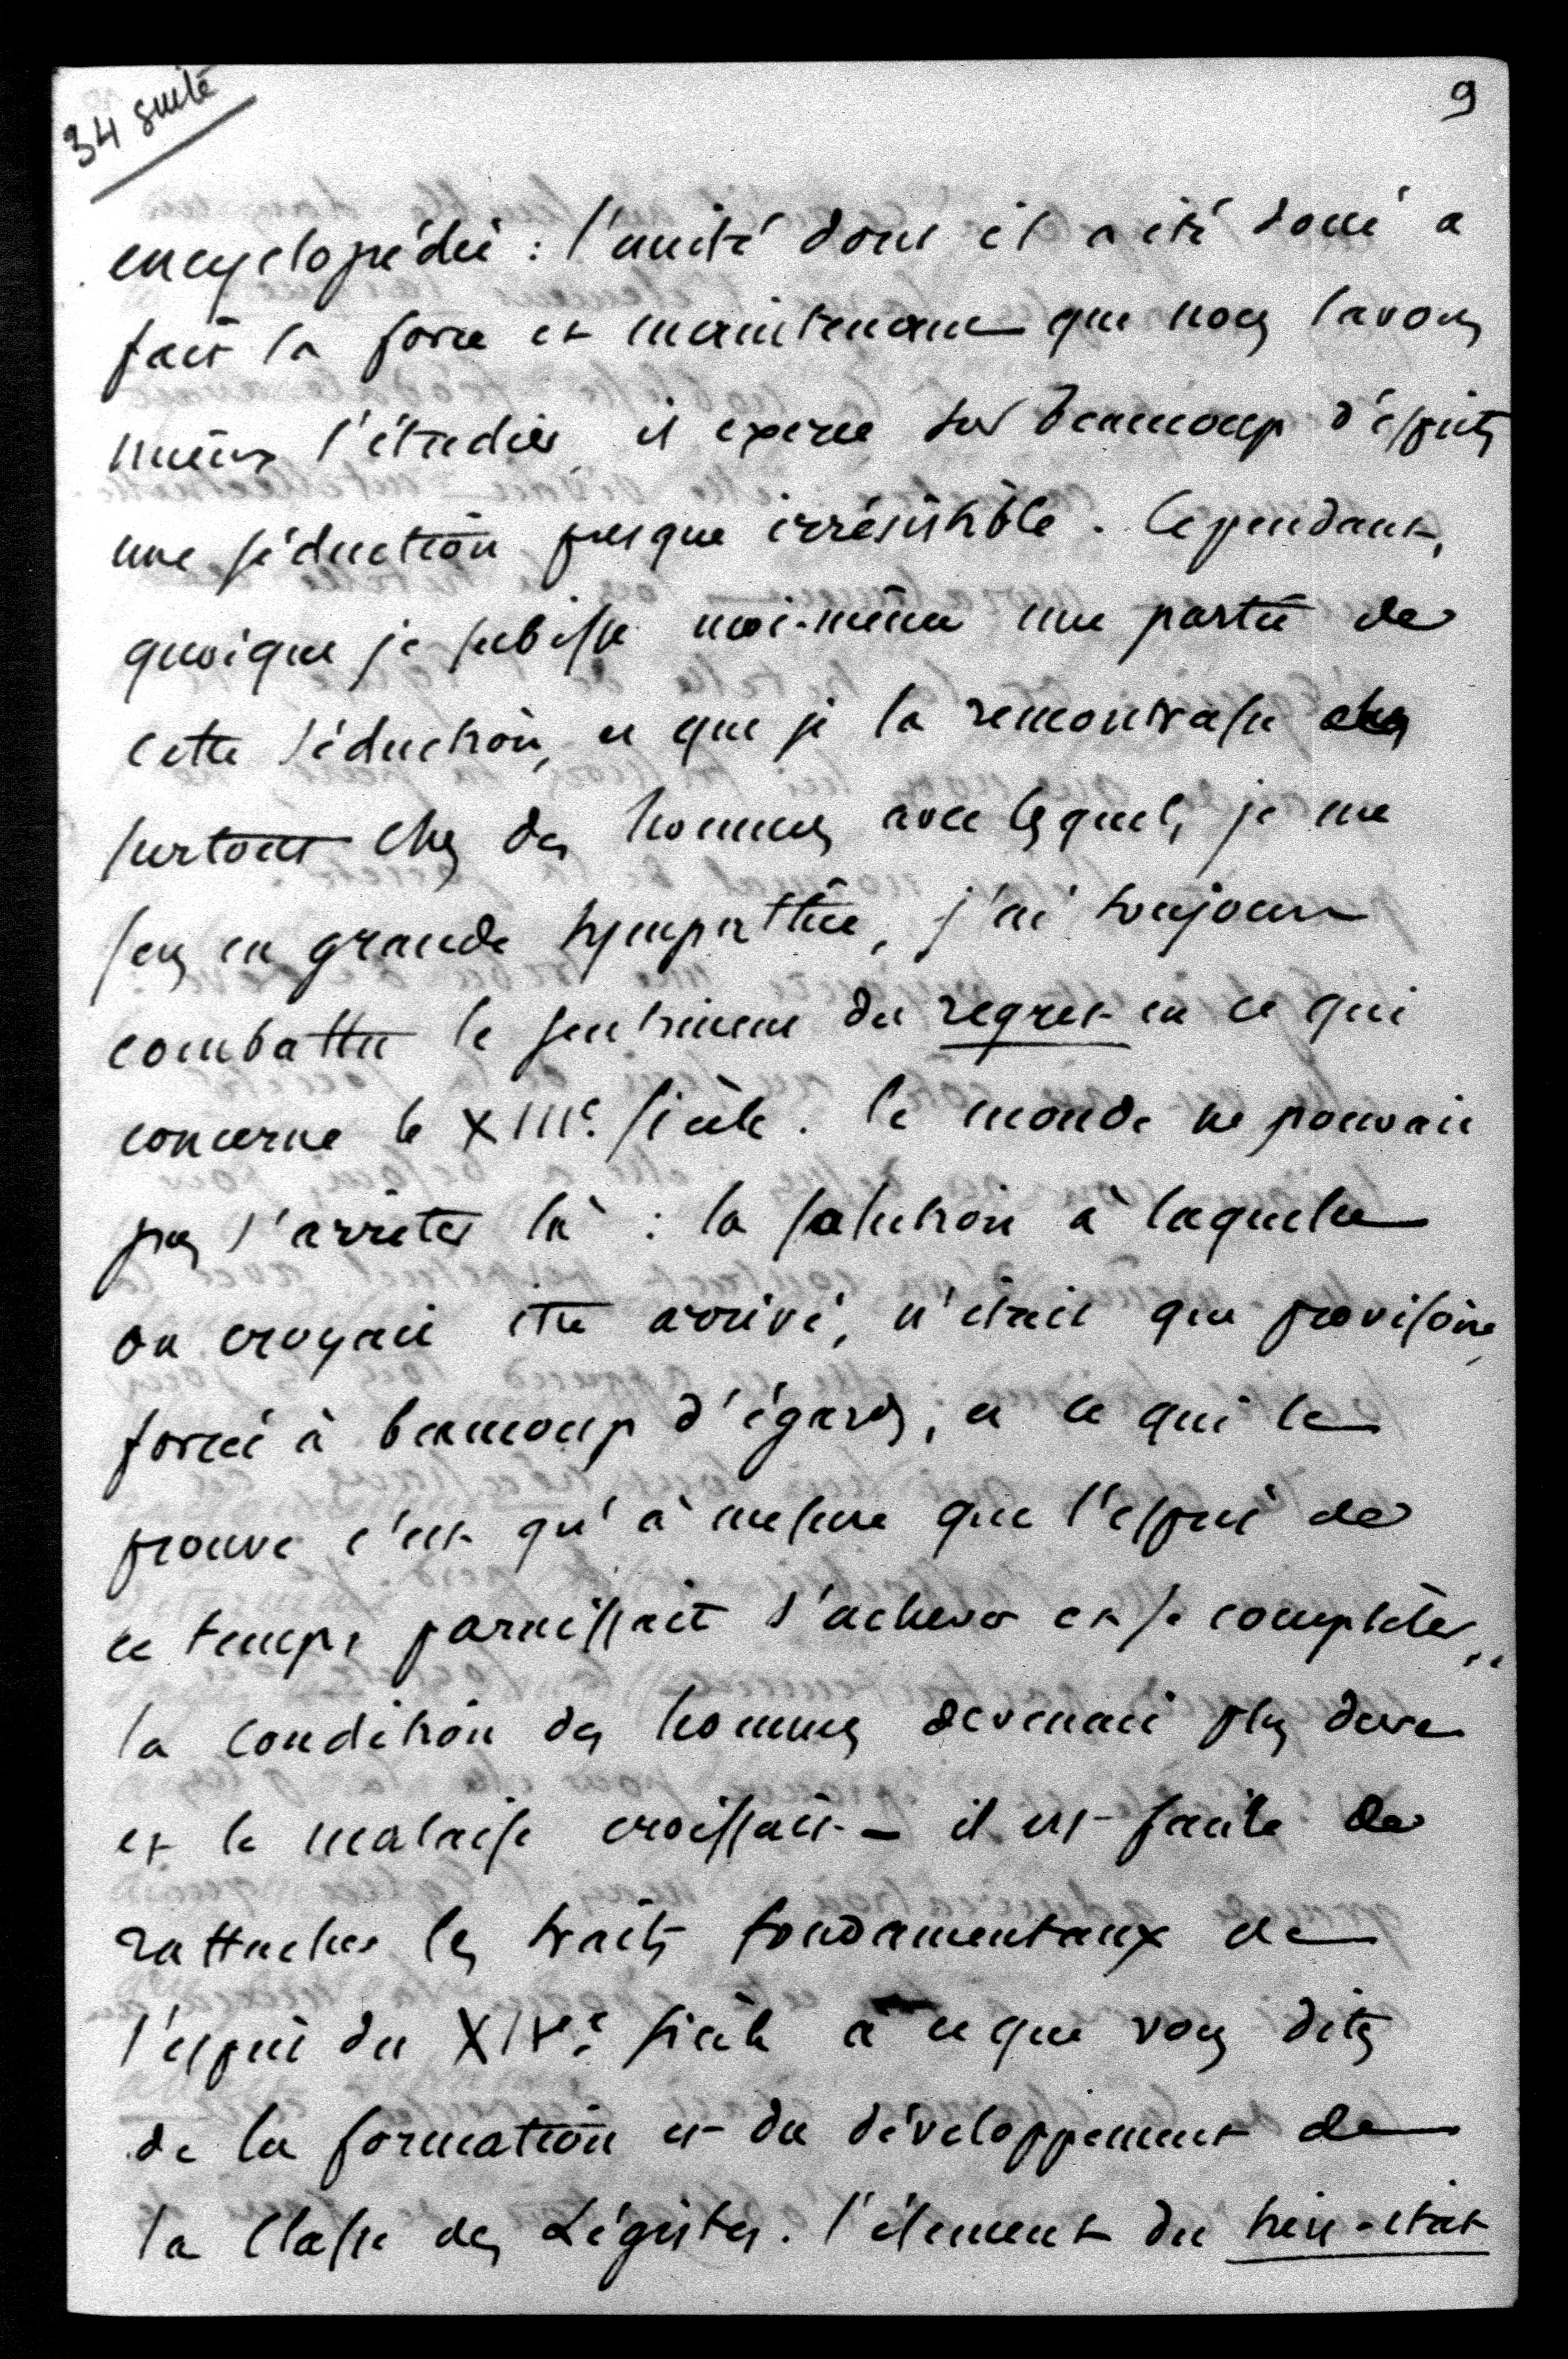 34 suite
9
encyclopédie : l'unité dont il a été doué a
fait la force et maintenant que nous savons
mieux l'étudier, il exerce sur beaucoup d'esprits
une séduction presque irrésistible. Cependant,
quoique je subisse moi-même une partie de
cette séduction, et que je la rencontrasse
surtout chez des hommes avec lesquels je me
sens en grande sympathie, j'ai toujours
combattu le sentiment du regret en ce qui
concerne le XIIIe. siècle. le monde ne pouvait
pas s'arrêter là : la solution à laquelle
on croyait être arrivé, n'était que provisoire,
forcée à beaucoup d'égards, et ce qui le
prouve c'est qu'à mesure que l'esprit de
ce temps paraissait s'achever et se compléter,
la condition des hommes devenait plus dure
et le malaise croissait - il est facile de
rattacher les traits fondamentaux de
l'esprit du XIVe. siècle à ce que vous dites
de la formation et du développement de
la classe des Légistes. l'élément du tiers-état